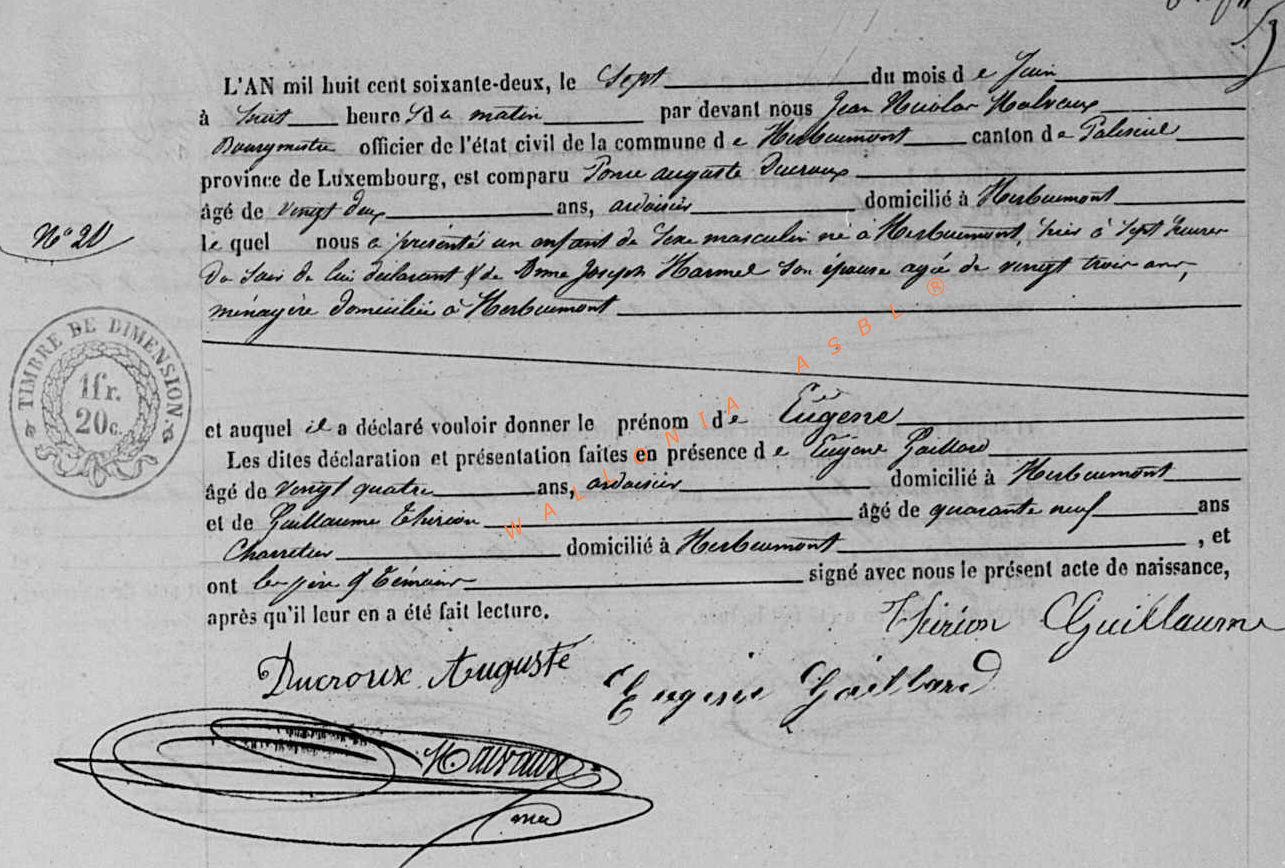 L'AN mil huit cent soixante-deux, le Sept du mois de Juin
à huit heures du matin par devant nous Jean Nicolas Malvaux
Bourgmestre officier de l'état civil de la commune de Herbeumont canton de Paliseul
province de Luxembourg, est comparu Ponce auguste Ducroux
âgé de vingt deux ans, ardoisier domicilié à Herbeumont
N° 20
le quel nous a présenté un enfant de sexe masculin né à Herbeumont, hier à Sept heures
du soir de lui déclarant & de Joseph Harmel son épouse agée de vingt trois ans,
ménagère domiciliée à Herbeumont
TIMBRE DE DIMENSION
1 fr.
20 c.
et auquel il a déclaré vouloir donner le prénom de Eugène
Les dites déclaration et présentation faites en présence de Eugène Gaillard
âgé de vingt quatre ans, ardoisier domicilié à Herbeumont
et de Guillaume Thirion âgé de quarante neuf ans
Charretier domicilié à Herbeumont, et
ont les père & témoins signé avec nous le présent acte de naissance,
après qu'il leur en a été fait lecture.
Thirion Guillaume
Ducroux Auguste
Eugène Gaillard
Malvaux
WALLONIA ASBL ®